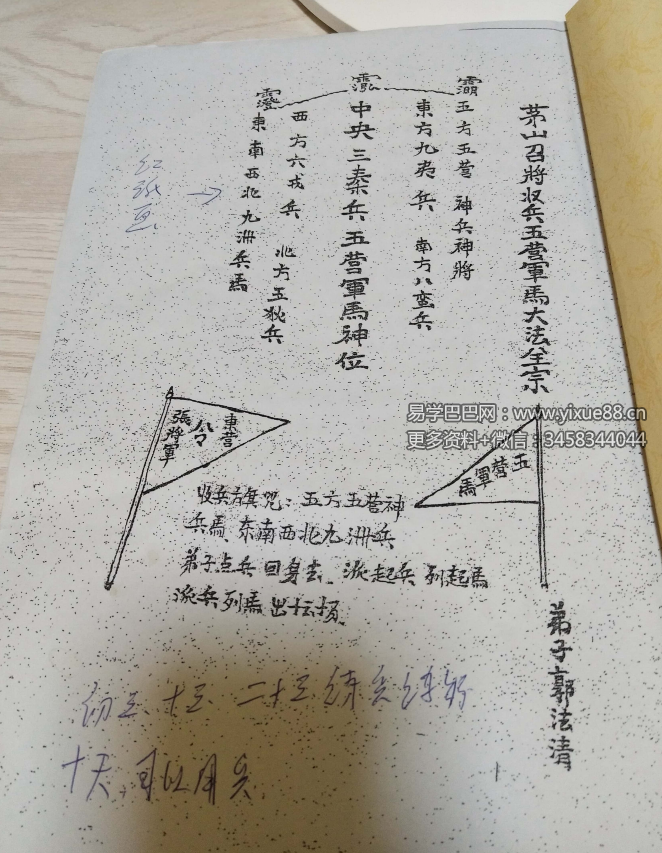 茅山召將收兵五營軍馬大法全宗
五方五营 神兵神將
東方九夷兵 南方八蛮兵
中央三秦兵五营軍馬神位
西方六戎兵 北方五狄兵
東南西北九洲兵馬
红纸画
東营
令
張將軍
五营軍馬
易学巴巴网：www.yixue88.cn
更多资料+微信：3458344044
收兵旗咒：五方五营神
兵馬、东南西北九洲兵
弟子点兵回身去、流起兵列起馬
流兵列馬出坛场、
弟子郭法清
初三、十三、二十三练兵
十天、可以用兵.